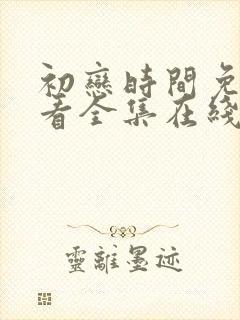 初戀時間免
看全集在綫
靈離墨迹